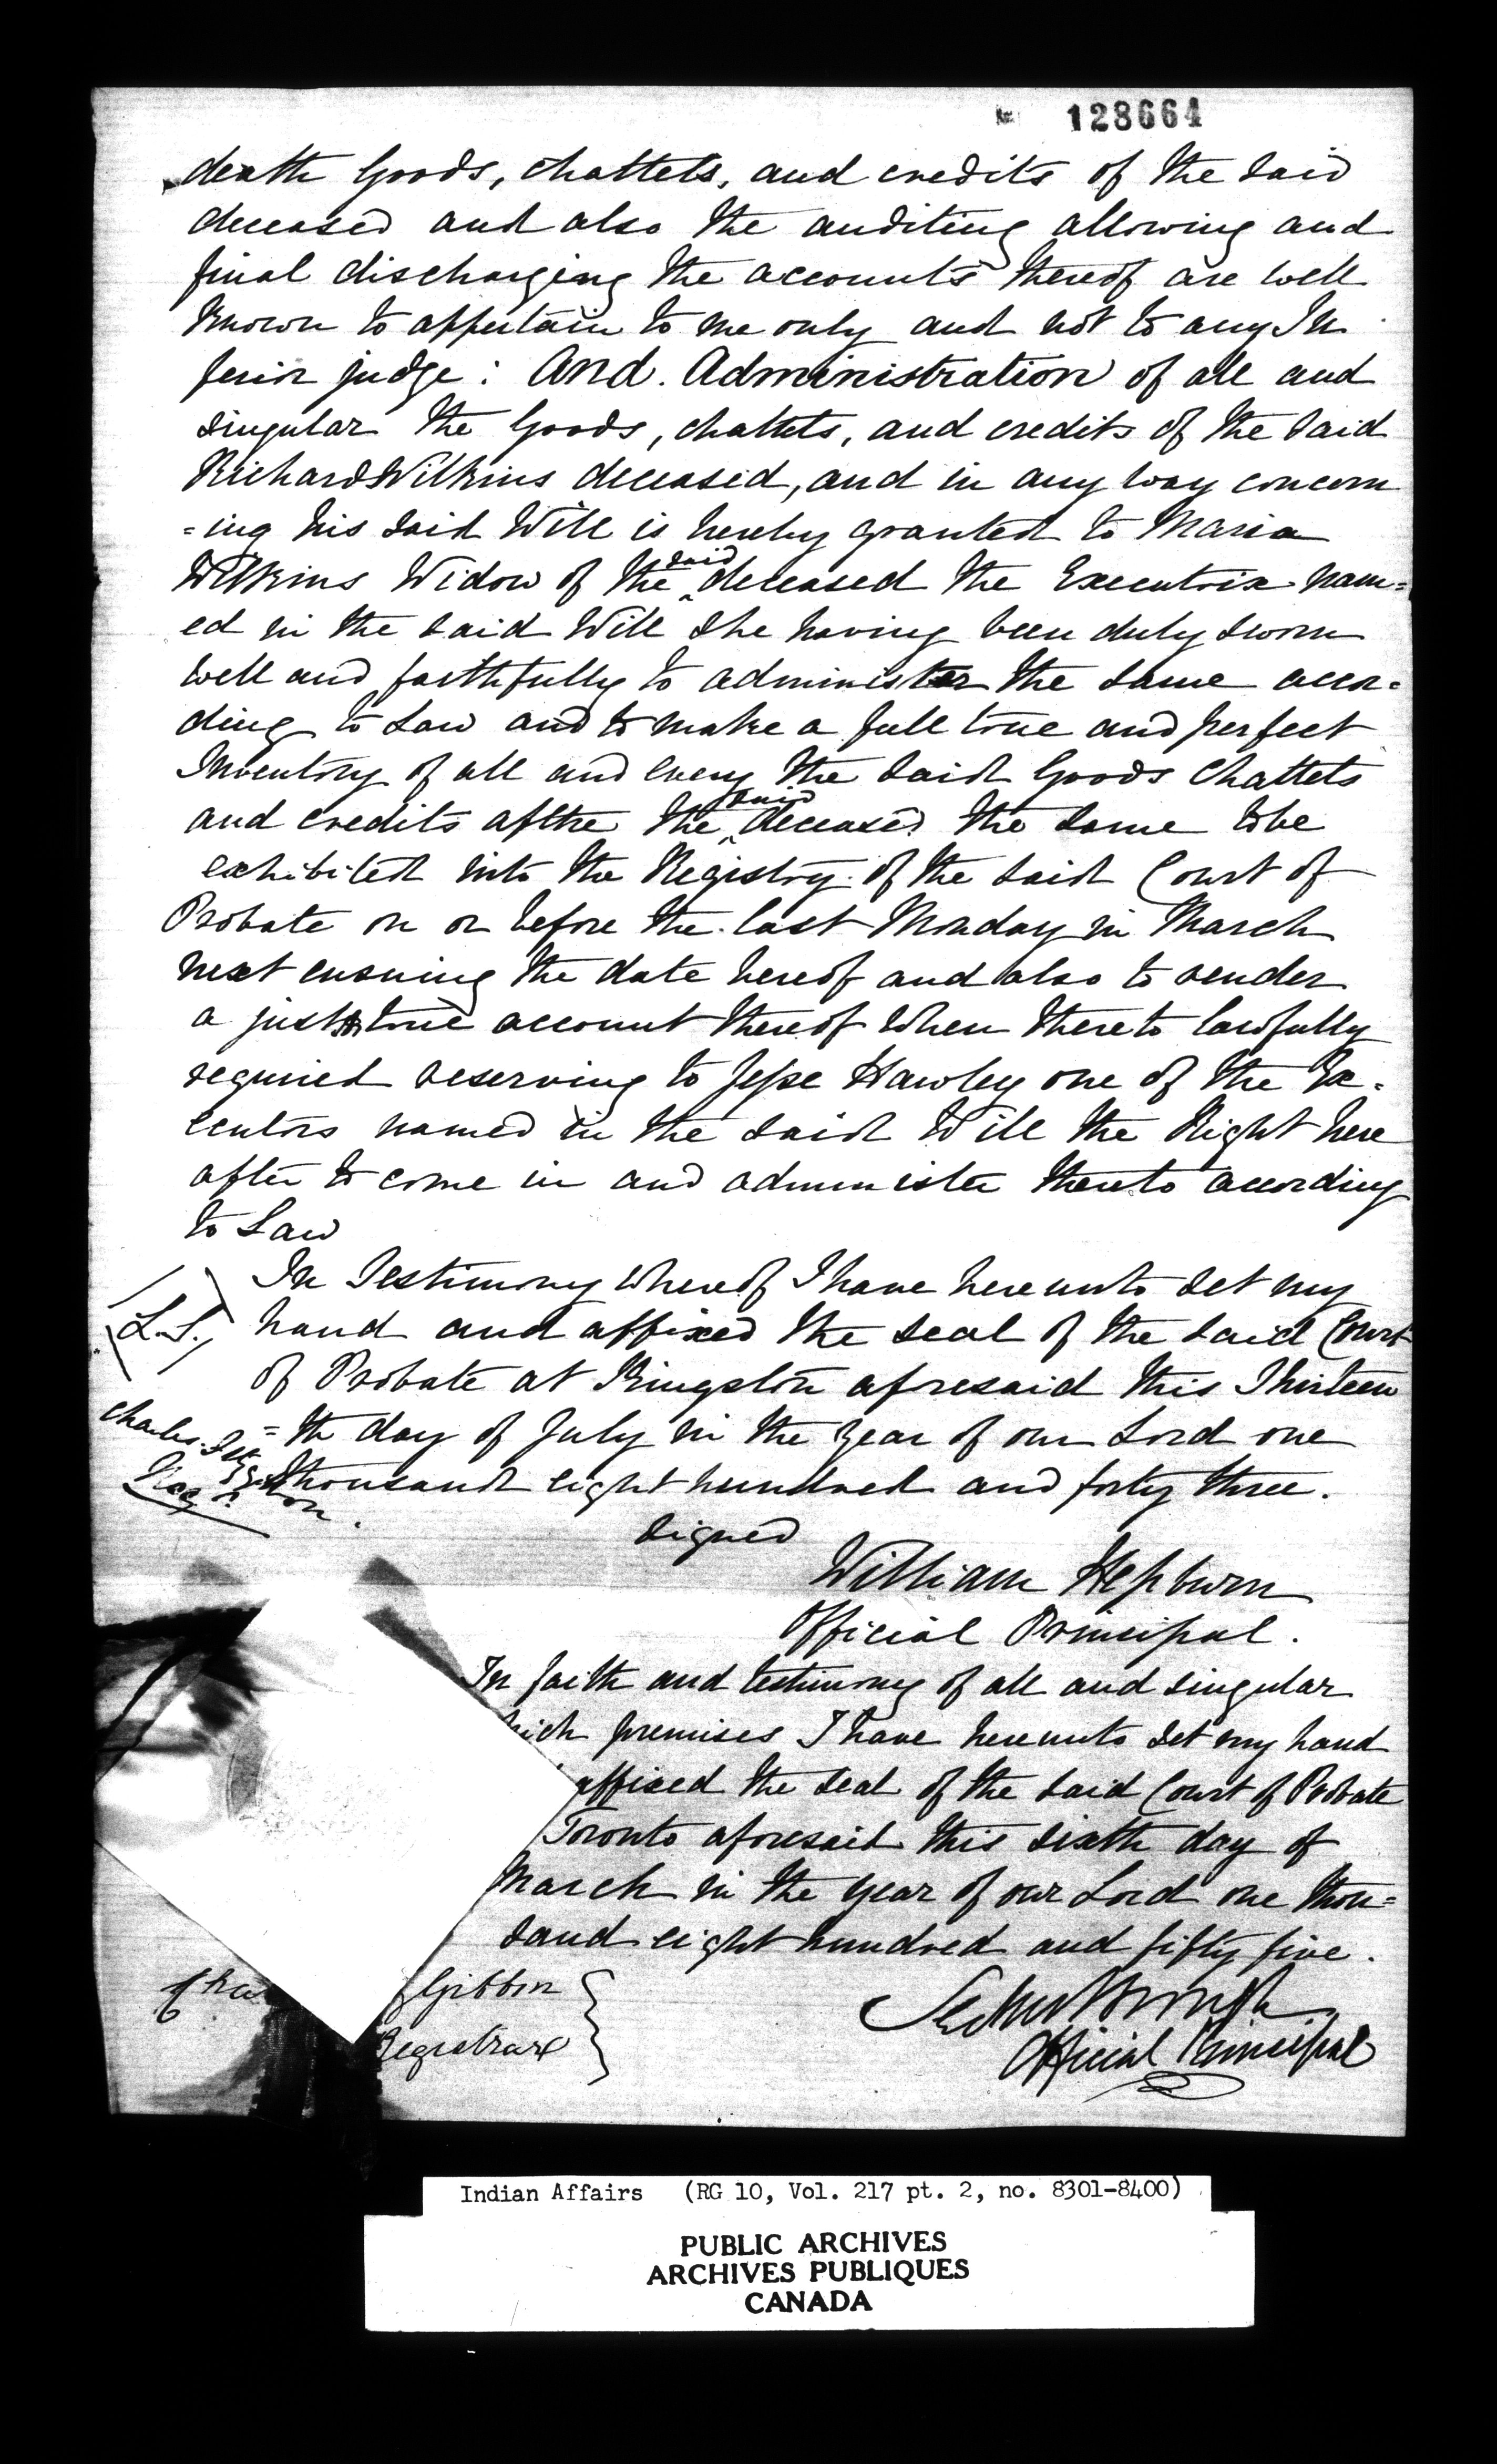 128664
death Goods, chattels, and credits of the said
deceased and also the auditing allowing and
final discharging the accounts thereof are well
Known to appertain to me only and not to any In
ferior judge: And. Administration of all and
singular the Goods, chattels, and credits of the said
Richard Wilkins deceased, and in any way concern
=ing his said Will is hereby granted to Maria
Wilkins Widow of the said deceased the Executrix nam=
ed in the said Will She having been duly sworn
well and faithfully to administer the same accor=
ding to Law and to make a full true and perfect
Inventory of all and every the said Goods Chattels
and credits of the the said deceased the same to be
exhibited into the Registry of the said Court of
Probate on or before the last Monday in March
next ensuing the date hereof and also to render
a just true account thereof when thereto lawfully
required reserving to Jesse Hawley one of the Ex=
ecutors named in the said Will the Right here
after to come in and administer thereto according
to Law
In Testimony whereof I have hereunto set my
(L.S.) hand and affixed the seal of the said Court
of Probate at Kingston aforesaid this Thirteen
=th day of July in the year of our Lord one
thousand eight hundred and forty three.
Charles
Signed
William Hepburn
Official Principal.
In faith and testimony of all and singular
hich premises I have hereunto set my hand
affixed the seal of the said Court of Probate
Toronto aforesaid this sixth day of
March in the year of our Lord one thou=
sand eight hundred and fifty five.
Gibbon
Registrar
Official Principal
Indian Affairs (RG 10, Vol. 217 pt. 2, no. 8301-8400)
PUBLIC ARCHIVES
ARCHIVES PUBLIQUES
CANADA